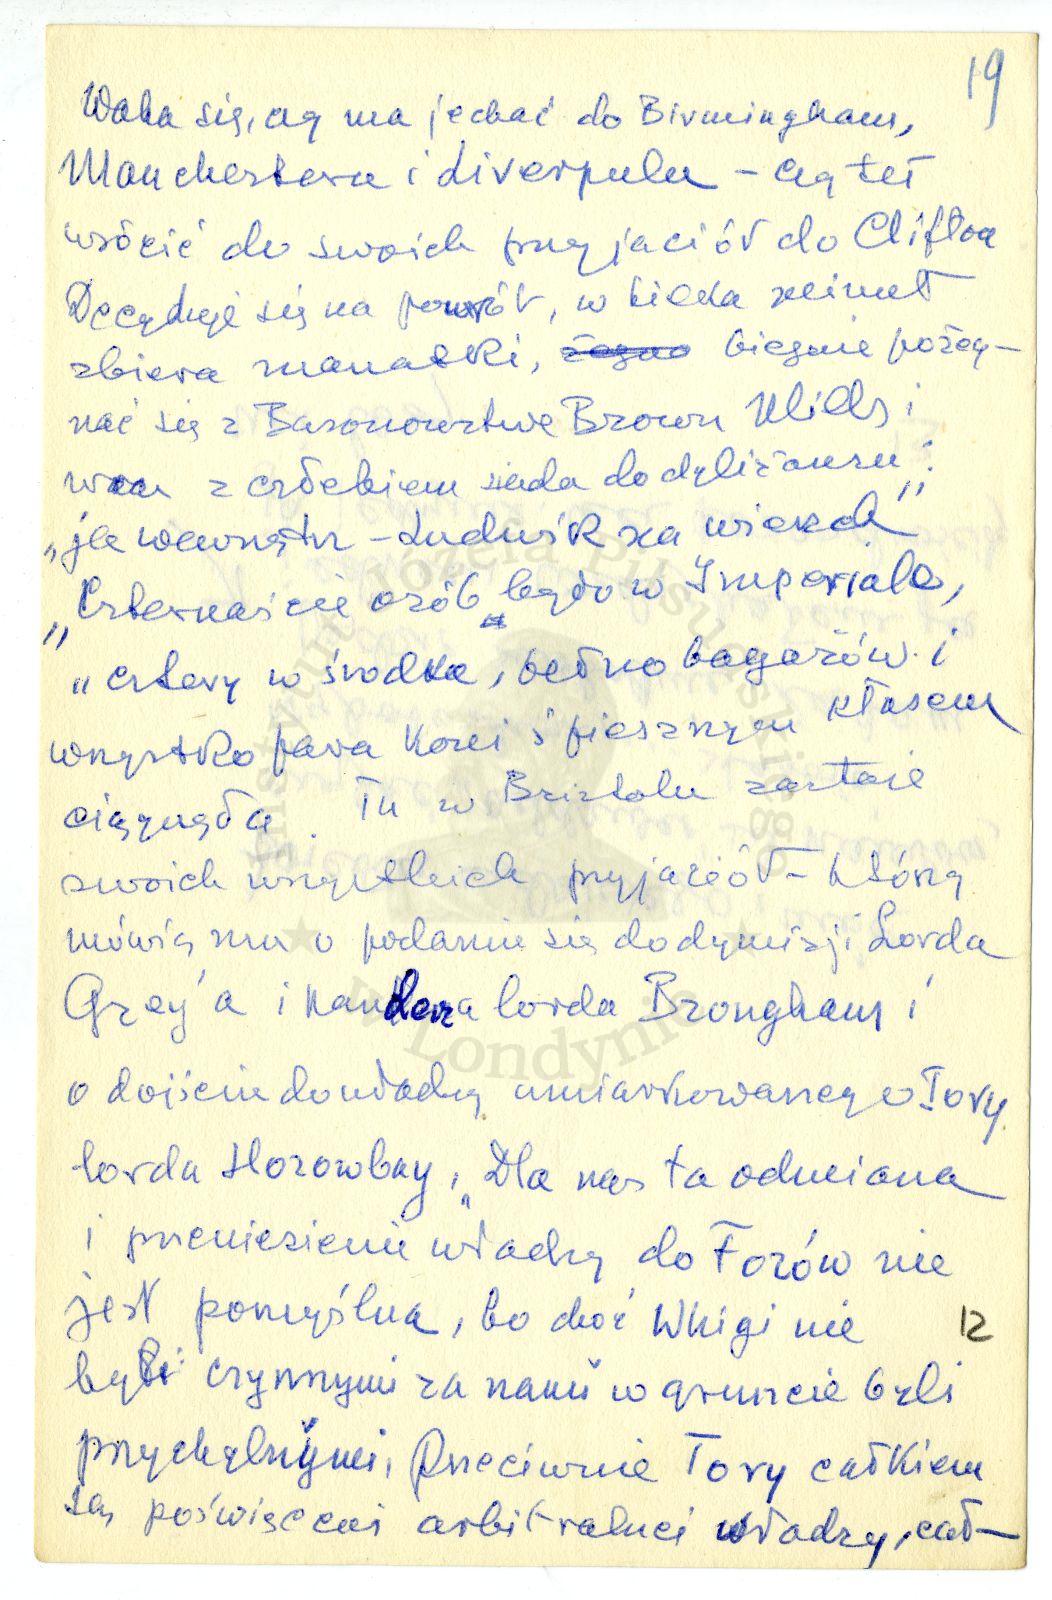 19
Waha się, czy ma jechać do Birmingham,
Manchesteru i Liverpulu – czy też
wrócić do swoich przyjaciół do Clifton
Decyduje się na powrót, w kilka minut
zbiera manatki, żegna biegnie pożeg–
nać się z Baronowstwe Brown Mills i
wraz z człekiem siada do dyliżansu".
„ja wewnątrz – Ludwik na wierzch"
„Czternaście osób było w Imperiale,
„cztery w środku, pełno bagażów i
wszystko para koni śpiesznym kłusem
ciągnęła. Tu w Bristolu zastaje
swoich wszystkich przyjaciół – którzy
mówią mu o podaniu się do dymisji Lorda
Grey'a i kanclerza lorda Brougham i
o dojściu do władzy umiarkowanego Tory
lorda Horowbay, „Dla nas ta odmiana
i przeniesienie władzy do Torów nie
jest pomyślna, bo choć Whigi nie
12
byli czynnymi za nami w gruncie byli
przychylnymi, Przeciwnie Tory całkiem
są poświęceni arbitralnej władzy, cał–
Instytut Józefa Piłsudskiego
w Londynie